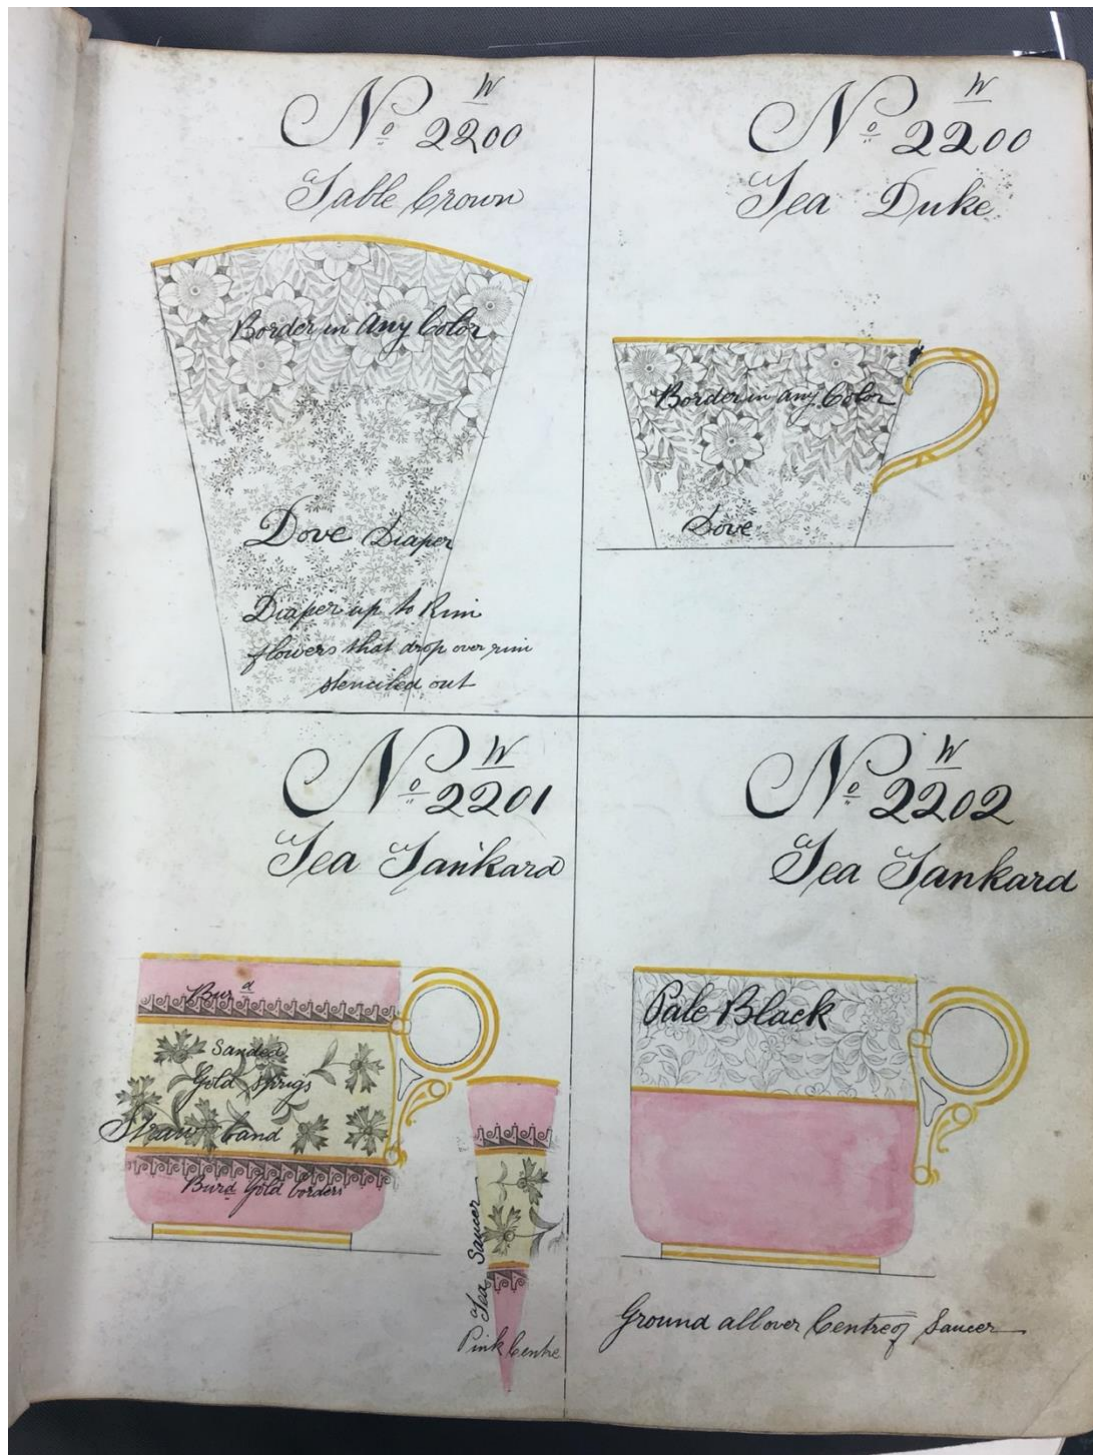 W
No 2200
Table Crown
Border in Any Color
Dove Diaper
Diaper up to Rim
flowers that drop over rim
stenciled out
W
No 2200
Tea Duke
Border in any Color
Dove
W
No 2201
Tea Tankard
Burd
Sanded
Gold Sprigs
Straw band
Burd Gold borders
Tea Saucer
Pink Centre
W
No 2202
Tea Tankard
Pale Black
Ground all over Centre of Saucer